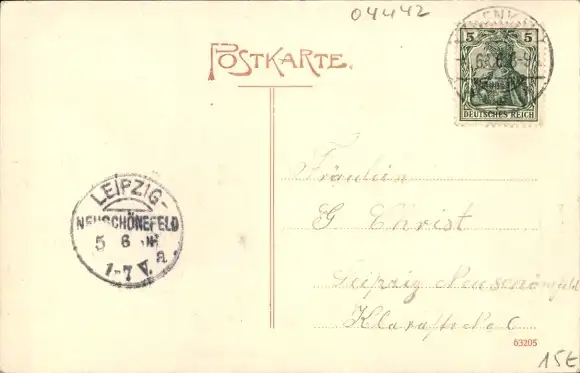 04442
POSTKARTE.
5 5
DEUTSCHES REICH
LEIPZIG-
NEUSCHÖNEFELD
5 6
1-7 V. a
Fräulein
G Christ
Leipzig Neuschönfeld
63205
15E